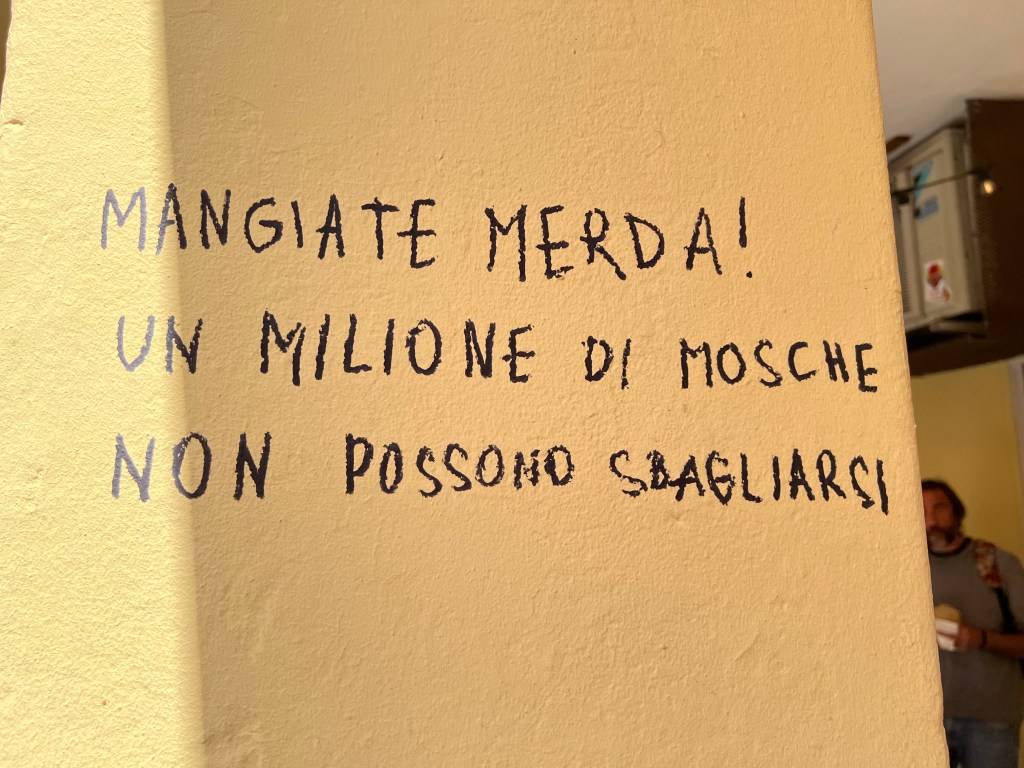 MANGIATE MERDA!
UN MILIONE DI MOSCHE
NON POSSONO SBAGLIARSI